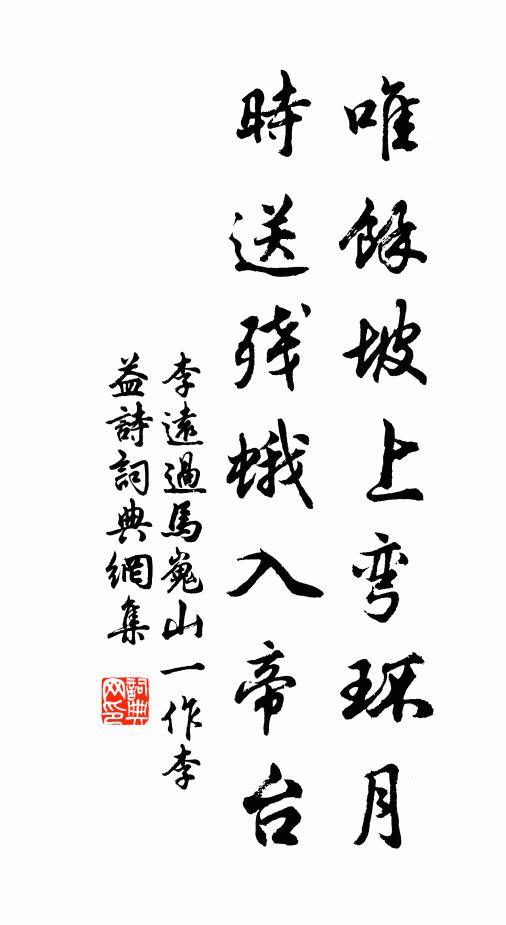 唯餘坡上弯环月
時送残蛾入帝台
李遠過馬嵬山一作李
益詩詞典網集
詞典网印